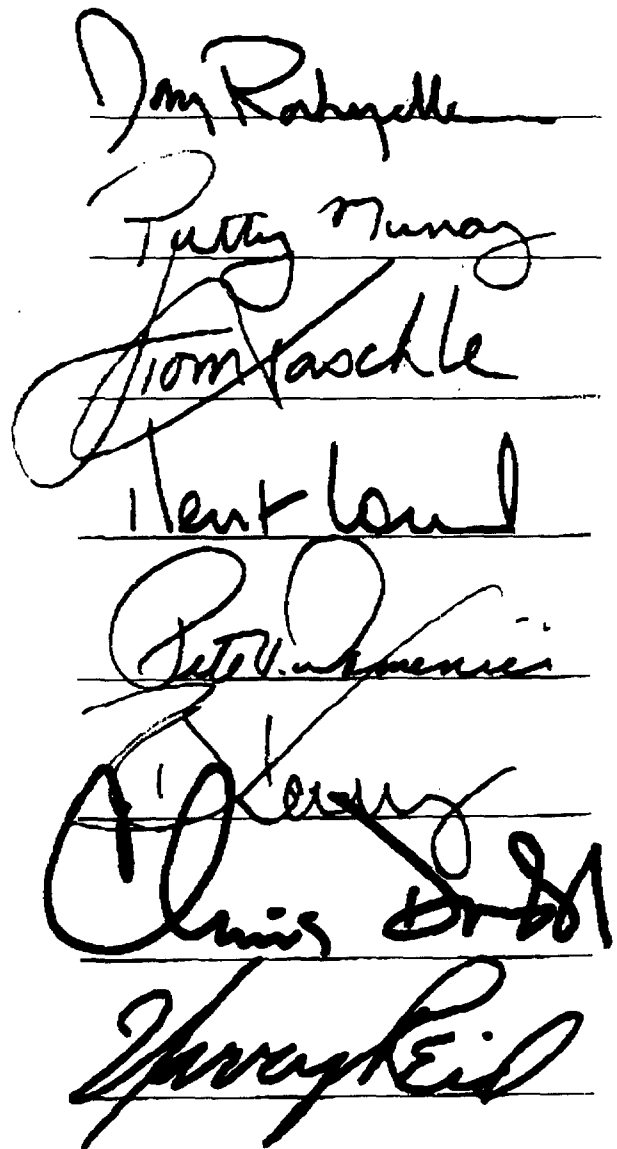 Jay Rockefeller
Patty Murray
Tom Daschle
Kent Conrad
Pete V. Domenici
Kerrey
Chris Dodd
Harry Reid